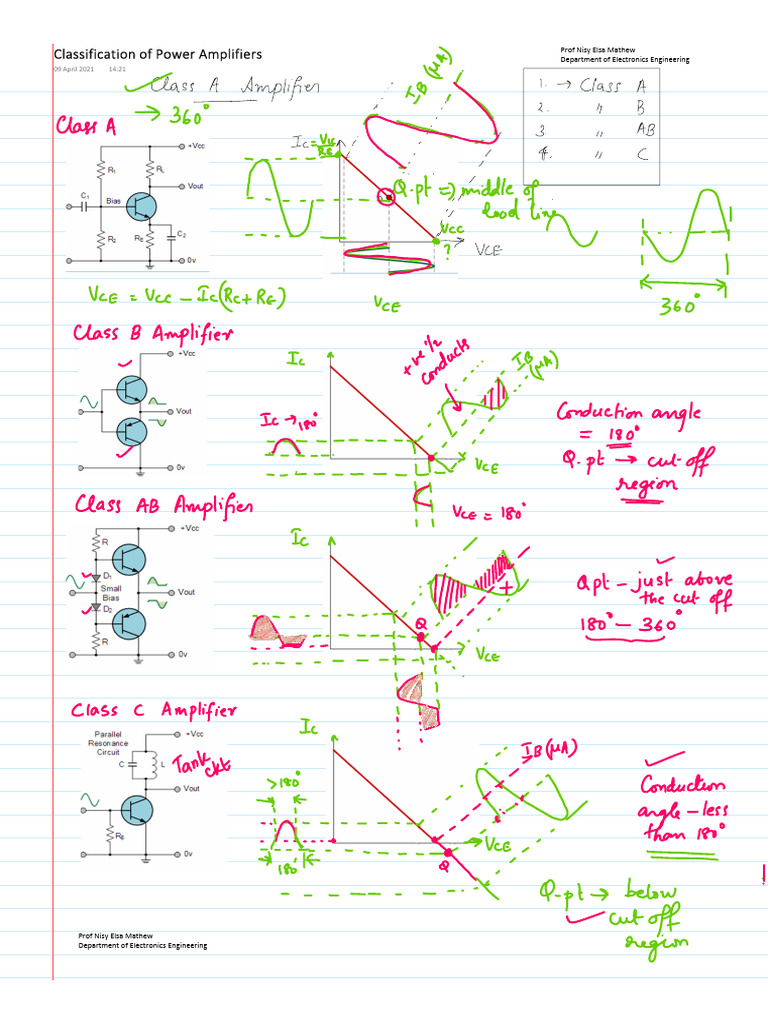 Classification of Power Amplifiers
09 April 2021 14:21
Prof Nisy Elsa Mathew
Department of Electronics Engineering
Class A Amplifier
→ 360°
1. → Class A
2. " B
3 " AB
4. " C
Class A
+Vcc
R1
RL
Vout
C1
Bias
R2
RE
C2
0v
Ic = Vcc/RE
IB (μA)
Q.pt => middle of
load line
Vcc
?
VCE
360°
VCE = VCC - IC(RC + RE)
VCE
Class B Amplifier
+Vcc
Vout
0v
Ic
+ve 1/2
conducts
IB (μA)
Ic → 180°
VCE
VCE = 180°
Conduction angle
= 180°
Q.pt → cut off
region
Class AB Amplifier
+Vcc
R
D1
Small
Bias
D2
R
Vout
0v
Ic
Q
+
VCE
Q pt - just above
the cut off
180° - 360°
Class C Amplifier
Parallel
Resonance
Circuit
C
L
+Vcc
Tank
ckt
Vout
0v
Ic
>180°
180°
IB (μA)
VCE
Q
Conduction
angle - less
than 180°
Q-pt → below
cut off
region
Prof Nisy Elsa Mathew
Department of Electronics Engineering